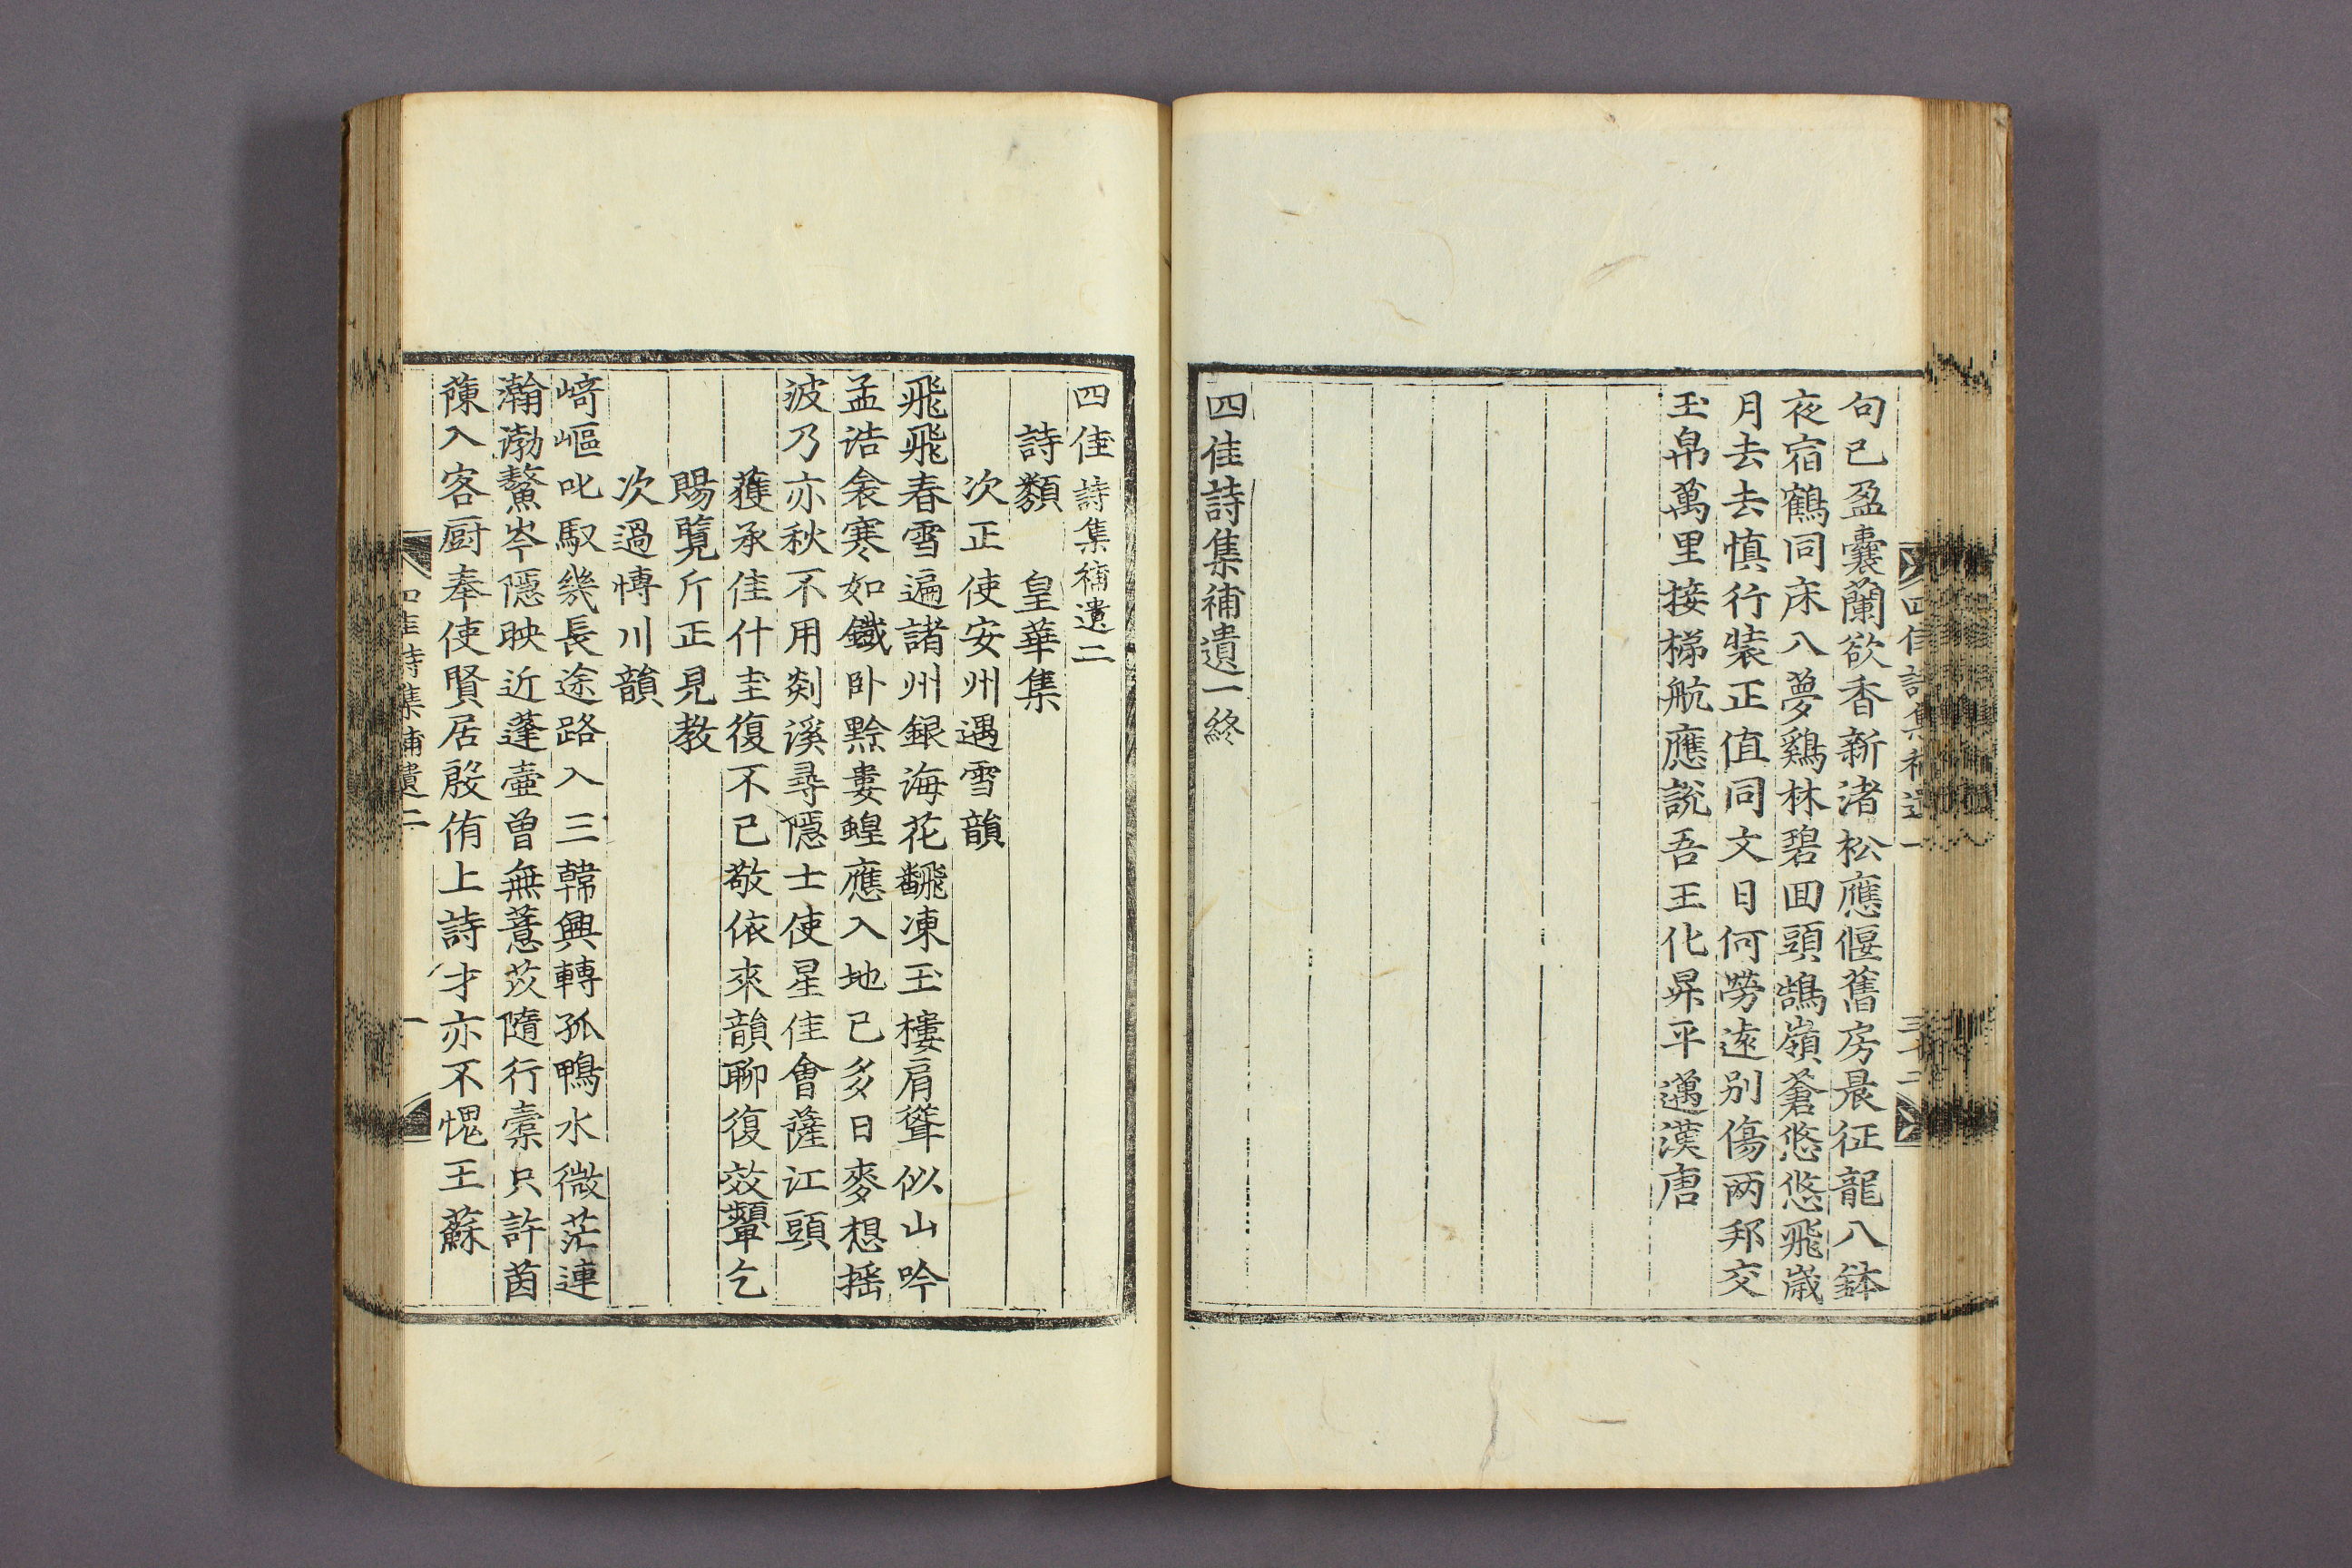 句已盈囊蘭欲香新渚松應偃舊房晨征龍八鉢
夜宿鶴同床八夢鷄林碧回頭鵠嶺蒼悠悠飛歲
月去去慎行装正值同文日何勞遠別傷两邦交
玉帛萬里接梯航應說吾王化昇平邁漢唐
四佳詩集補遺一終
四佳詩集補遺二
詩類　皇華集
次正使安州遇雪韻
飛飛春雪遍諸州銀海花飜凍玉樓肩聳似山吟
孟浩衾寒如鐵卧黔婁蝗應入地已多日麥想摇
波乃亦秋不用剡溪尋隱士使星佳會薩江頭
獲承佳什圭復不已敬依來韻聊復效顰乞
賜覽斤正見教
次過慱川韻
崎嶇叱馭幾長途路入三韓興轉孤鴨水微茫連
瀚渤鰲岑隱映近蓬壺曾無薏苡隨行橐只許茵
蔯入客厨奉使賢居殷侑上詩才亦不愧王蘇
四佳詩集補遺二
一